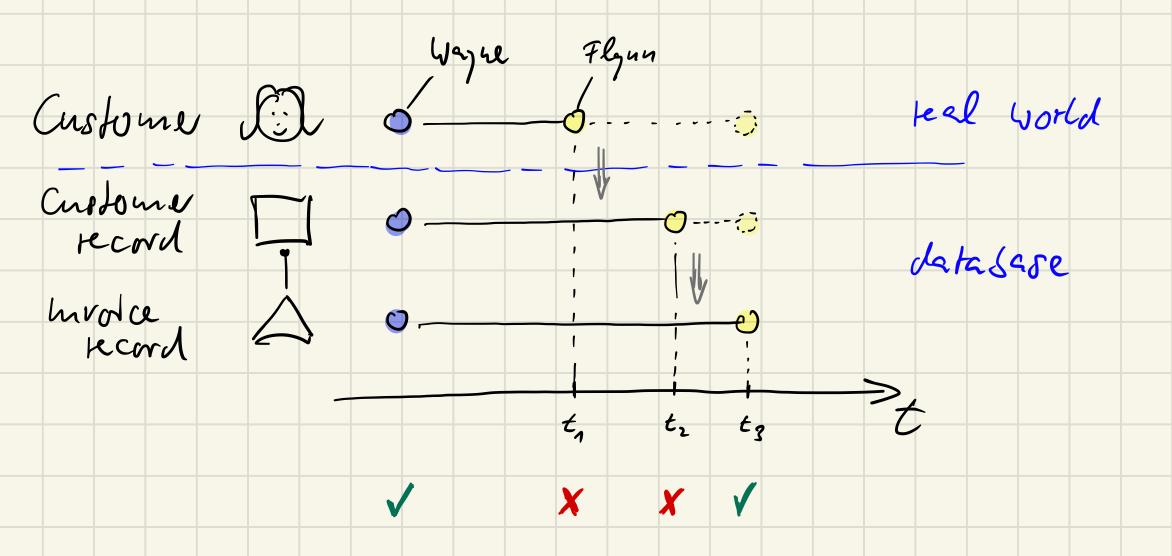 Wayne Flynn
Custome real world
Customer
record
database
Invoice
record
t
t1 t2 t3
✓ ✗ ✗ ✓